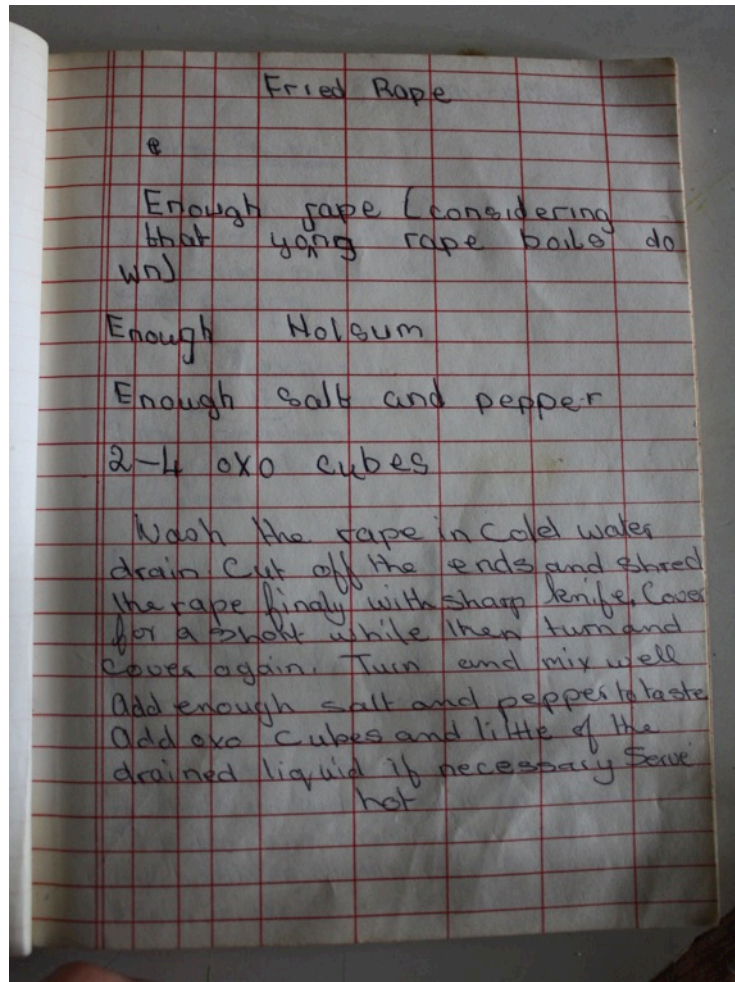 Fried Rape
e
Enough rape (considering
that yong rape boils do
wn)
Enough Holsum
Enough salt and pepper
2-4 oxo cubes
Wash the rape in Cold water
drain Cut off the ends and shred
the rape finaly with sharp knife. Cover
for a short while then turn and
cover again. Turn and mix well
add enough salt and pepper to taste
add oxo cubes and little of the
drained liquid if necessary Serve
hot